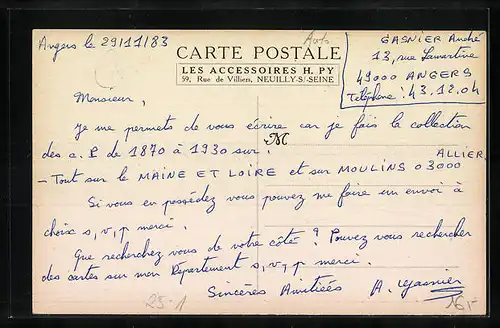 Auto
Angers le 29/11/83
CARTE POSTALE
LES ACCESSOIRES H. PY
59, Rue de Villiers, NEUILLY-S/-SEINE
GASNIER André
13, rue Lamartine
49000 ANGERS
Téléphone : 43.12.04
Monsieur,
Je me permets de vous écrire car je fais la collection
des c. P de 1870 à 1930 sur :
M
- Tout sur le MAINE ET LOIRE et sur MOULINS 03000 ALLIER.
Si vous en possédez vous pouvez me faire un envoi à
choix s, v, p merci.
Que recherchez vous de votre côté ? Pouvez vous rechercher
des cartes sur mon Département s, v, p merci.
Sincères Amitiées A. Gasnier
25-1
16,-